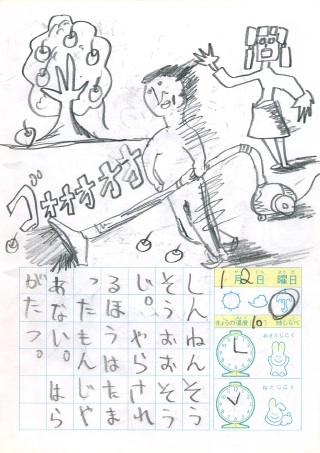 ゴオオオオオ
しんねんそう
そうおおそう
じ。やらされ
るほうはたま
ったもんじや
あない。はら
がたつ。
1月2日 曜日
きょうの温度 10 時しらべ
おきたじこく
ねたじこく